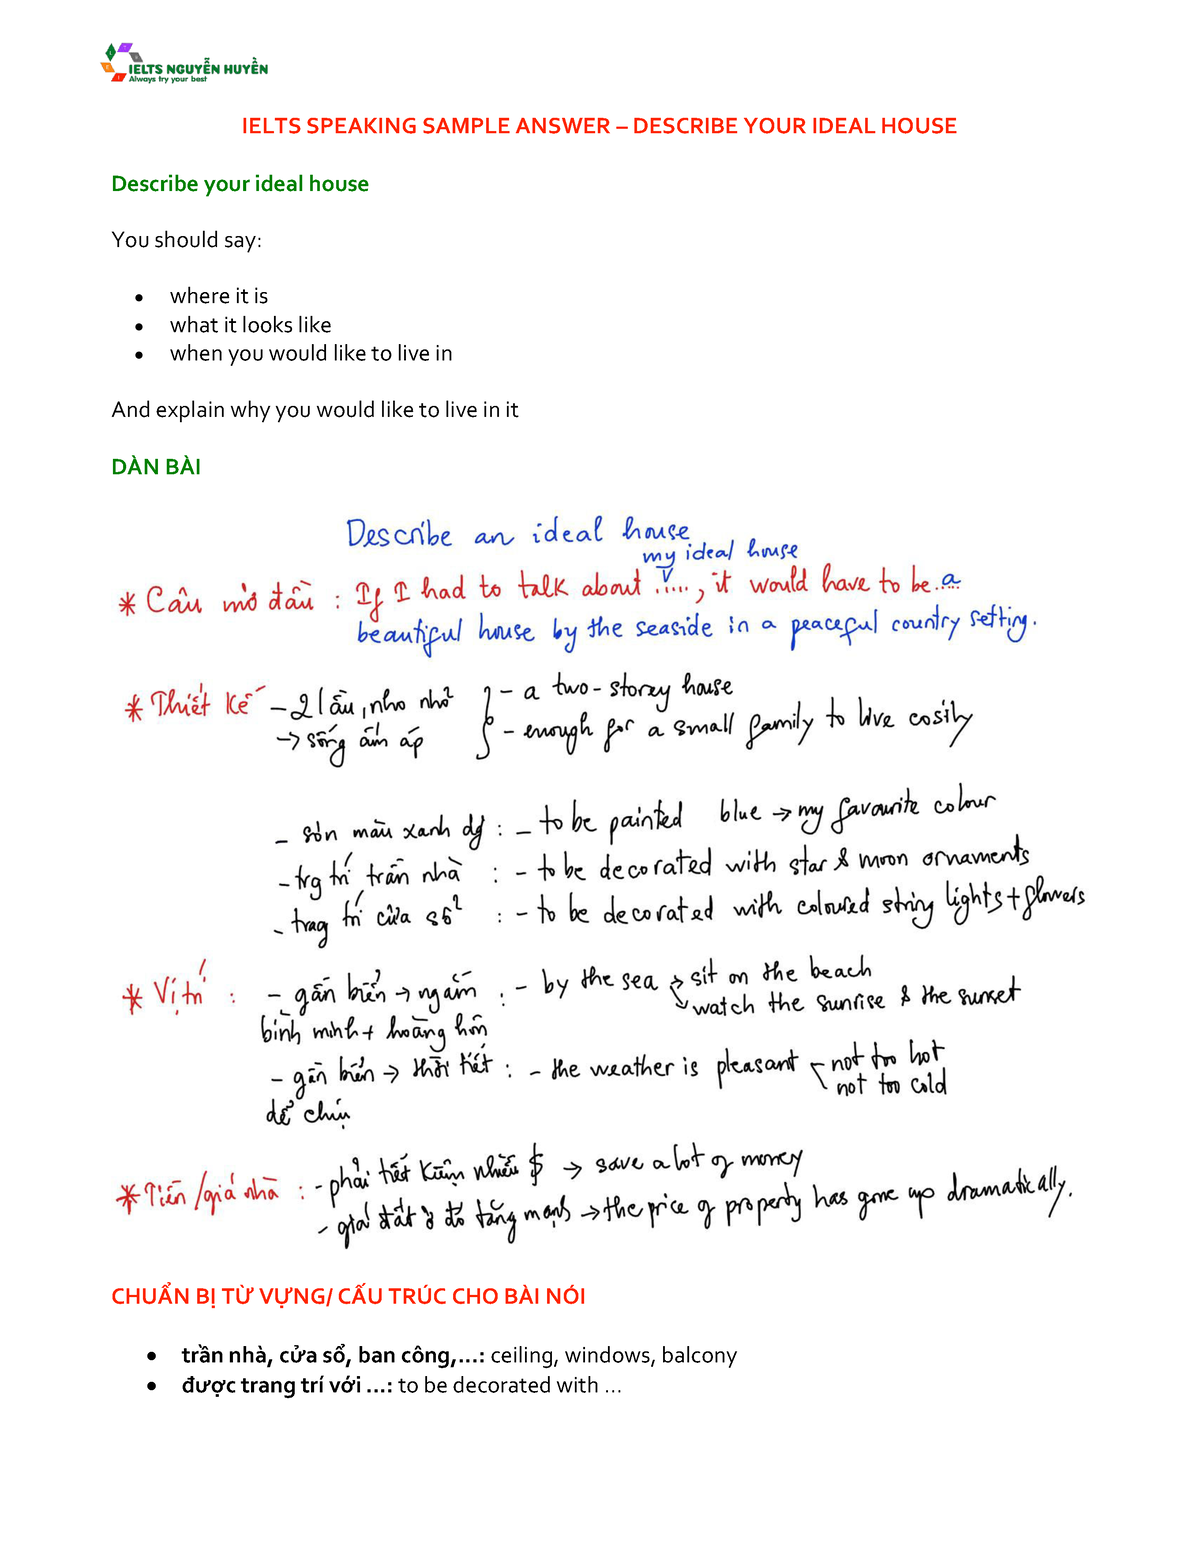 IELTS NGUYỄN HUYỀN
Always try your best
IELTS SPEAKING SAMPLE ANSWER – DESCRIBE YOUR IDEAL HOUSE
Describe your ideal house
You should say:
• where it is
• what it looks like
• when you would like to live in
And explain why you would like to live in it
DÀN BÀI
Describe an ideal house
my ideal house
* Câu mở đầu : If I had to talk about ....., it would have to be.... a
beautiful house by the seaside in a peaceful country setting.
* Thiết kế – 2 lầu, nho nhỏ – a two-storey house
→ sống ấm áp – enough for a small family to live cosily
– sơn màu xanh dg : – to be painted blue → my favourite colour
– trg trí trần nhà : – to be decorated with star & moon ornaments
– trag trí cửa sổ : – to be decorated with coloured string lights + flowers
* Vị trí : – gần biển → ngắm : – by the sea → sit on the beach
bình minh + hoàng hôn ↘ watch the sunrise & the sunset
– gần biển → thời tiết : – the weather is pleasant not too hot
dễ chịu not too cold
* Tiền/giá nhà : – phải tiết kiệm nhiều $ → save a lot of money
– giá đất ở đó tăng mạnh → the price of property has gone up dramatically.
CHUẨN BỊ TỪ VỰNG/ CẤU TRÚC CHO BÀI NÓI
• trần nhà, cửa sổ, ban công,...: ceiling, windows, balcony
• được trang trí với ...: to be decorated with ...